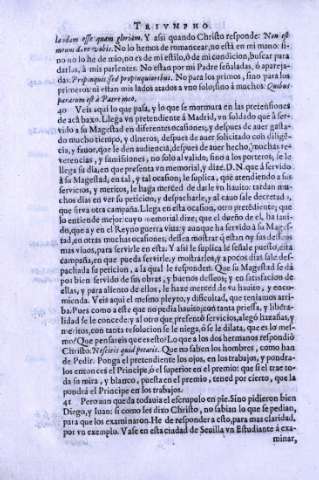 TRIVMPHO
laudem esse quam gloriam. Y assi quando Christo responde: Non est
meum dare vobis. No lo hemos de romancear, no está en mi mano: si-
no no lo he de mio, no es de mi estilo, ó de mi condicion, buscar para
darlas, à mis parientes. No estan por mi Padre señaladas, ó apareja-
das: Propinquis, sed propinquioribus. No para los primos, sino para los
primeros: ni estan mis lados atados a vno solo, sino à muchos: Quibus
paratum est à Patre meo.
40 Veis aqui lo que pasa, y lo que se murmura en las pretensiones
de acà baxo. Llega vn pretendiente à Madrid, vn soldado que à ser-
vido a su Magestad en diferentes ocasiones, y despues de auer gasta-
do mucho tiempo, y dineros, despues de auer solicitado con diligē-
cia, y fauor, que le den audiencia, despues de auer hecho, muchas re-
verencias, y sumisiones, no solo al valido, sino a los porteros, se le
llega su dia, en que presenta vn memorial, y dize. D. N. que à servido
à su Magestad, en tal, y tal ocasion; le suplica, que atendiendo a sus
servicios, y meritos, le haga merced de darle vn hauito: tardan mu-
chos dias en ver su peticion, y despacharle, y al cauo sale decretada,
que sirva otra campaña. Llega en esta ocasion, otro pretēdiente; que
lo entiende mejor: cuyo memorial dize; que el dueño de el, ha sauí-
do, que ay en el Reyno guerra viva: y aunque ha servido à su Mages-
tad, en otras muchas ocasiones; desea mostrar q̃ estan oy sus deseos
mas vivos, para servirle en esta: Y assi le suplica le señale puesto, en la
campaña, en que pueda servirle, y mostrarlos, y a pocos dias sale des-
pachada su peticion, a la qual le responden: Que su Magestad se dà
por bien servido de sus obras, y buenos deseos; y en satisfacion de
ellas, y para aliento de ellos, le haze merced de vn hauito, y enco-
mienda. Veis aqui el mesmo pleyto, y dificultad, que teniamos arri-
ba. Pues como a este que no pedia hauito; con tanta priessa, y libera-
lidad se le concede, y al otro que, presentó servicios, alegó hazañas, y
meritos, con tanta resolucion se le niega, ó se le dilata, que es lo mes-
mo? Que pensareis que es esto? Lo que a los dos hermanos respondió
Christo. Nescitis quid petatis. Que no saben los hombres, como han
de Pedir. Ponga el pretendiente los ojos, en los trabajos, y pondra-
los entonces el Principe, ó el superior en el premio: que si el trae to-
da su mira, y blanco, puesta en el premio, tened por cierto, que la
pondrá el Principe en los trabajos.
41 Pero aun que da todauia el escrupulo en pie. Si no pidieron bien
Diego, y Iuan: si como les dixo Christo, no sabian lo que se pedian,
para que los examinaron. He de responder a esto, para mas claridad,
por vn exemplo. Vase en esta ciudad de Sevilla vn Estudiante à exa-
minar,